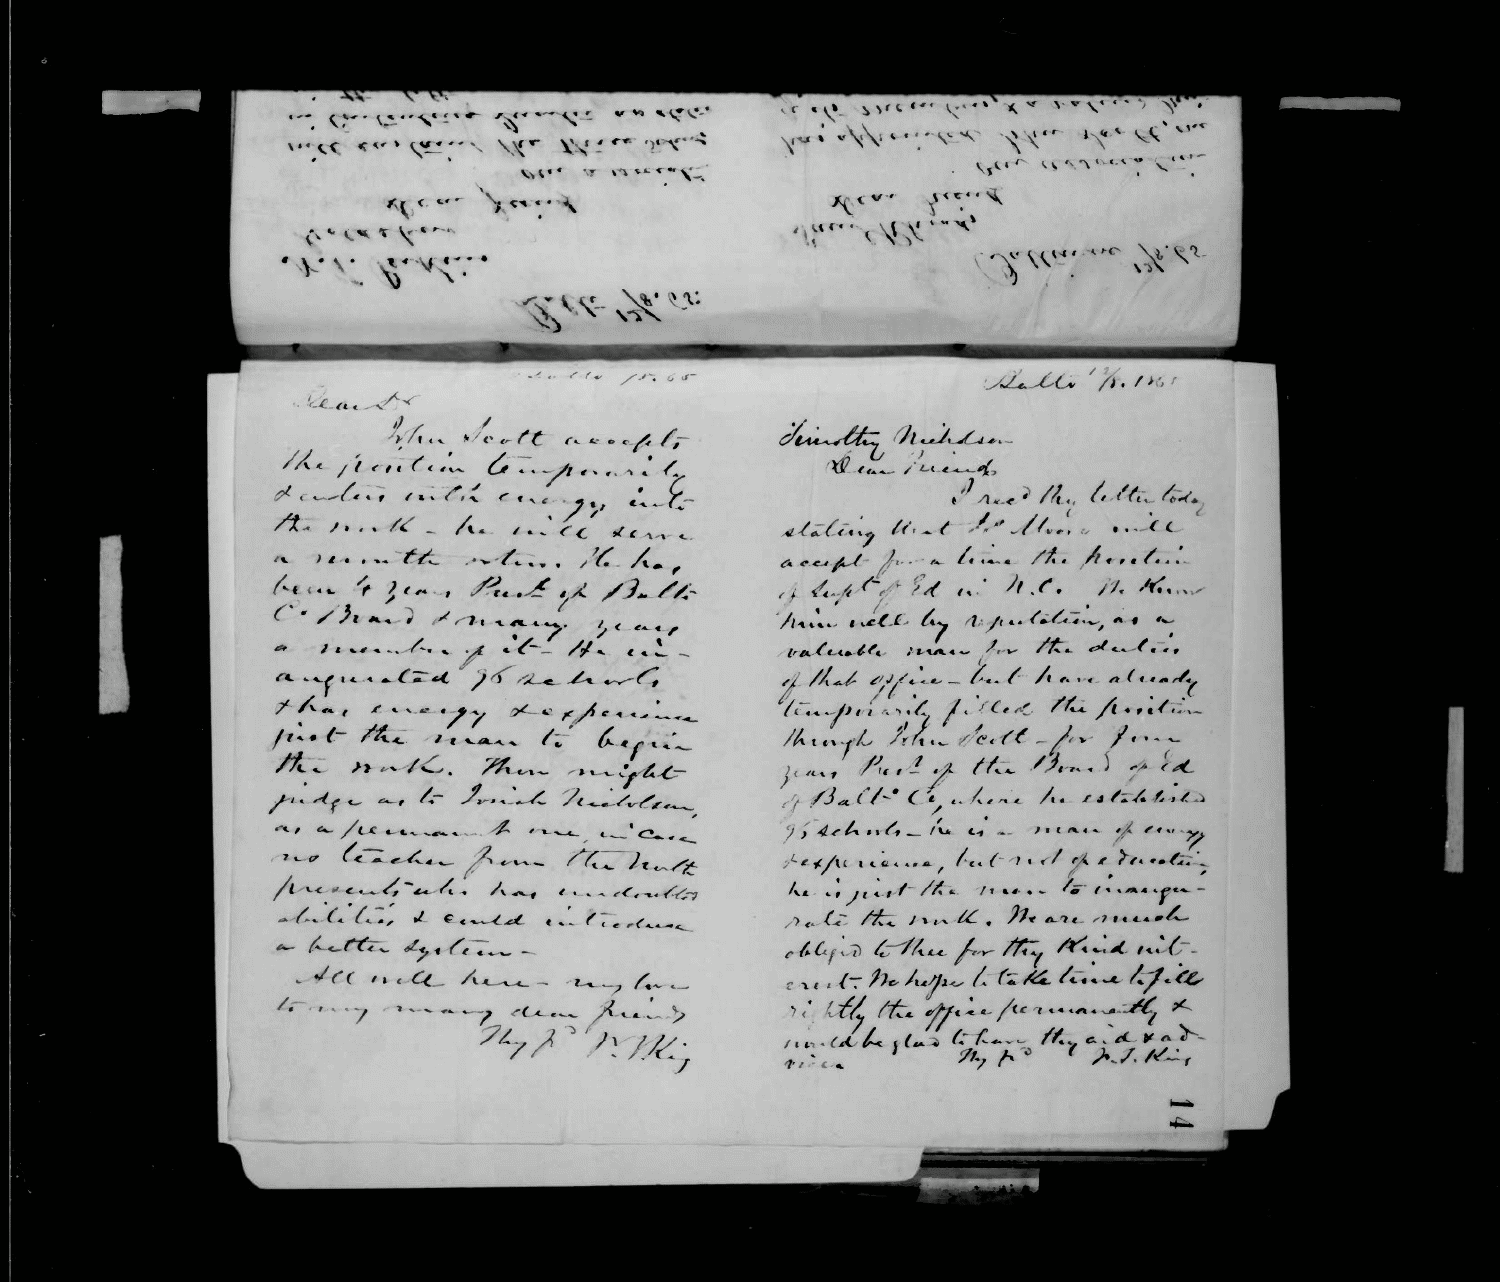 Balto 12/8. 65.
N. T. Perkins
Goldsboro
Dear Friend
One a month
will sustain the three Schs.
in
Baltimore 12/8. 65
Saml Rhoads
Dear Friend
Our Association
has appointed John Scott, one
of its members, & a valued
Balto 12/8. 65
Dear Sr
John Scott accepts
the position temporarily
& enters with energy into
the work – he will serve
a month or two. He has
been 4 years Prest. of Balto
Co Board & many years
a member of it – He in-
augurated 96 schools
& has energy & experience
just the man to begin
the work. Thou might
judge as to Josiah Nicholson,
as a permanent one, in case
no teacher from the North
presents who has undoubted
abilities & could introduce
a better system –
All well here – my love
to my many dear friends
Thy fd F. T. King
Balto 12/8. 1865
Timothy Nicholson
Dear Friend
I recd thy letter today
stating that Jos Moore will
accept for a time the position
of Supt of Ed in N.C. We know
him well by reputation, as a
valuable man for the duties
of that office – but have already
temporarily filled the position
through John Scott – for four
years Prest of the Board of Ed
of Balto Co, where he established
95 schools – he is a man of energy
& experience, but not of education,
he is just the man to inaugu-
rate the work. We are much
obliged to thee for thy kind int-
erest. We hope to take time to fill
rightly the office permanently &
would be glad to have thy aid & ad-
vice Thy fd F. T. King
14